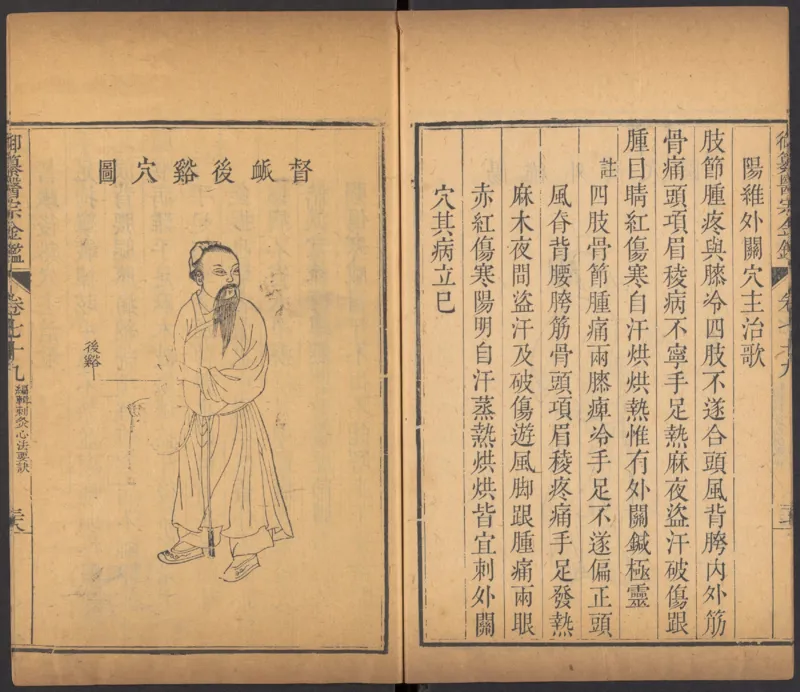 御纂醫宗金鑑
卷七十九
陽維外關穴主治歌
肢節腫疼與膝冷四肢不遂合頭風背胯內外筋
骨痛頭項眉稜病不寧手足熱麻夜盜汗破傷跟
腫目睛紅傷寒自汗烘烘熱惟有外關鍼極靈
註四肢骨節腫痛兩膝痺冷手足不遂偏正頭
風脊背腰胯筋骨頭項眉稜疼痛手足發熱
麻木夜間盜汗及破傷遊風脚跟腫痛兩眼
赤紅傷寒陽明自汗蒸熱烘烘皆宜刺外關
穴其病立已
督衇後谿穴圖
後谿
御纂醫宗金鑑
卷七十九
編輯刺灸心法要訣